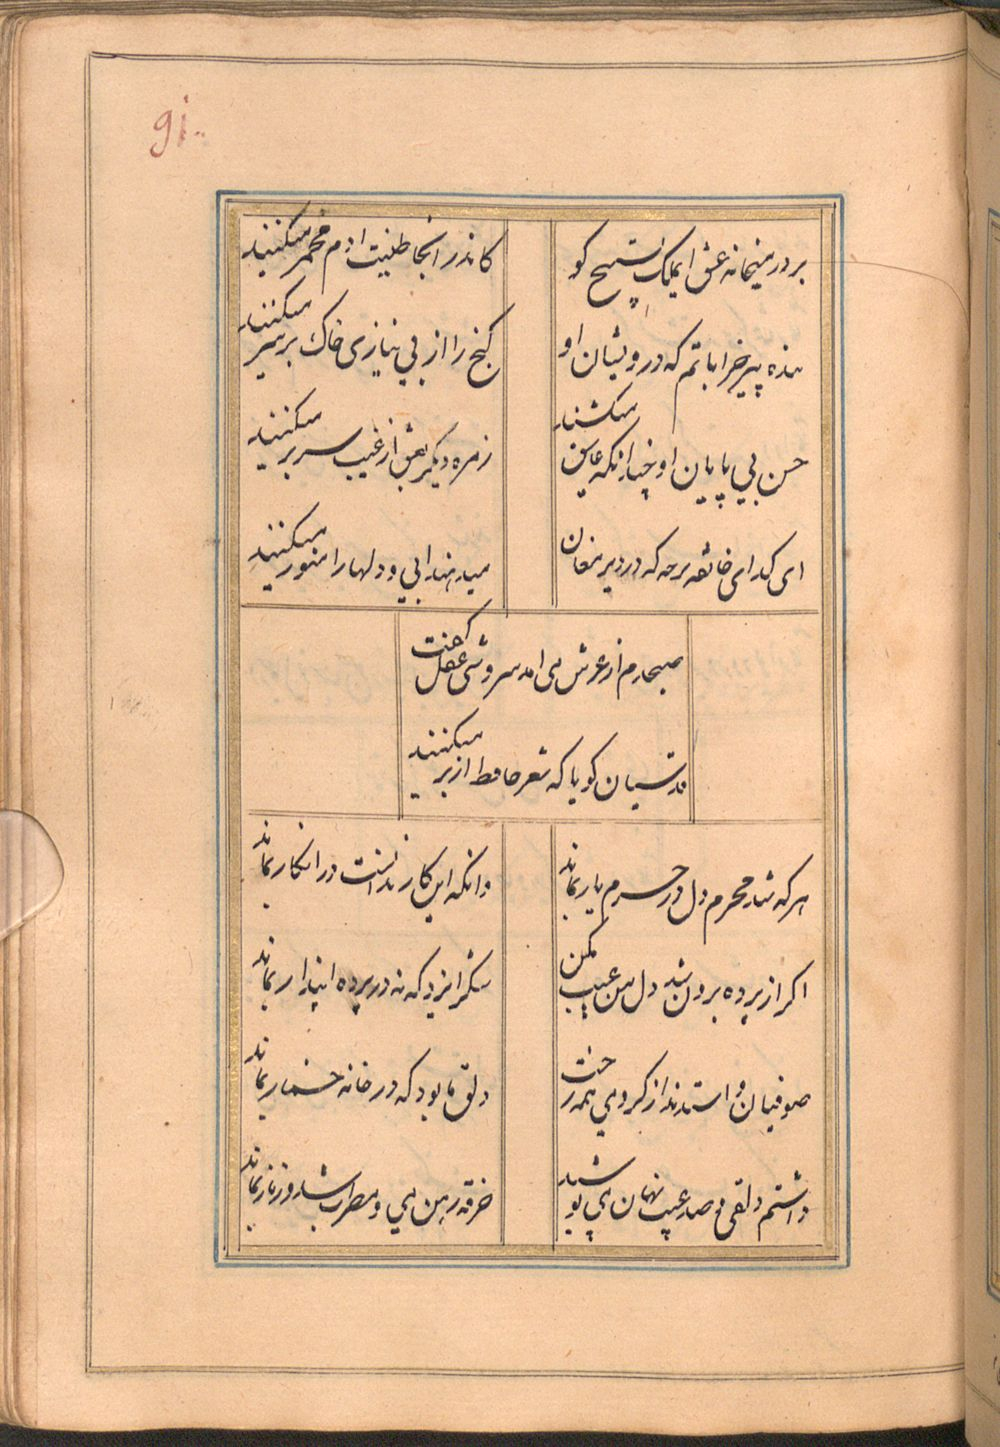 91
بر در میخانه عشق ای ملک تسبیح گو
کاندر انجا طنیت ادم مخمر میکنند
بنده پیر خراباتم که درویشان او
کنج را از بی نیازی خاک بر سر میکنند
حسن بی پایان او چندانکه عاشق میکشد
زمره دیکر بعشق از غیب سر بر میکنند
ای کدای خانقه برجه که در دیر مغان
میدهند ابی و دلها را منور میکنند
صبحدم از عرش می امد سروشی عقل کفت
قدسیان کویا که شعر حافط از بر میکنند
هر که شد محرم دل در حرم یار بماند
وانکه این کار ندانست در انکار بماند
اکر از پرده برون شد دل من عیب مکن
شکر ایزد که نه در پرده پندار بماند
صوفیان واستدند از کرو می همه رخت
دلق ما بود که در خانه خمار بماند
داشتم دلقی و صد عیب نهان می پوشید
خرقه رهن می و مطرب شد و زنار بماند